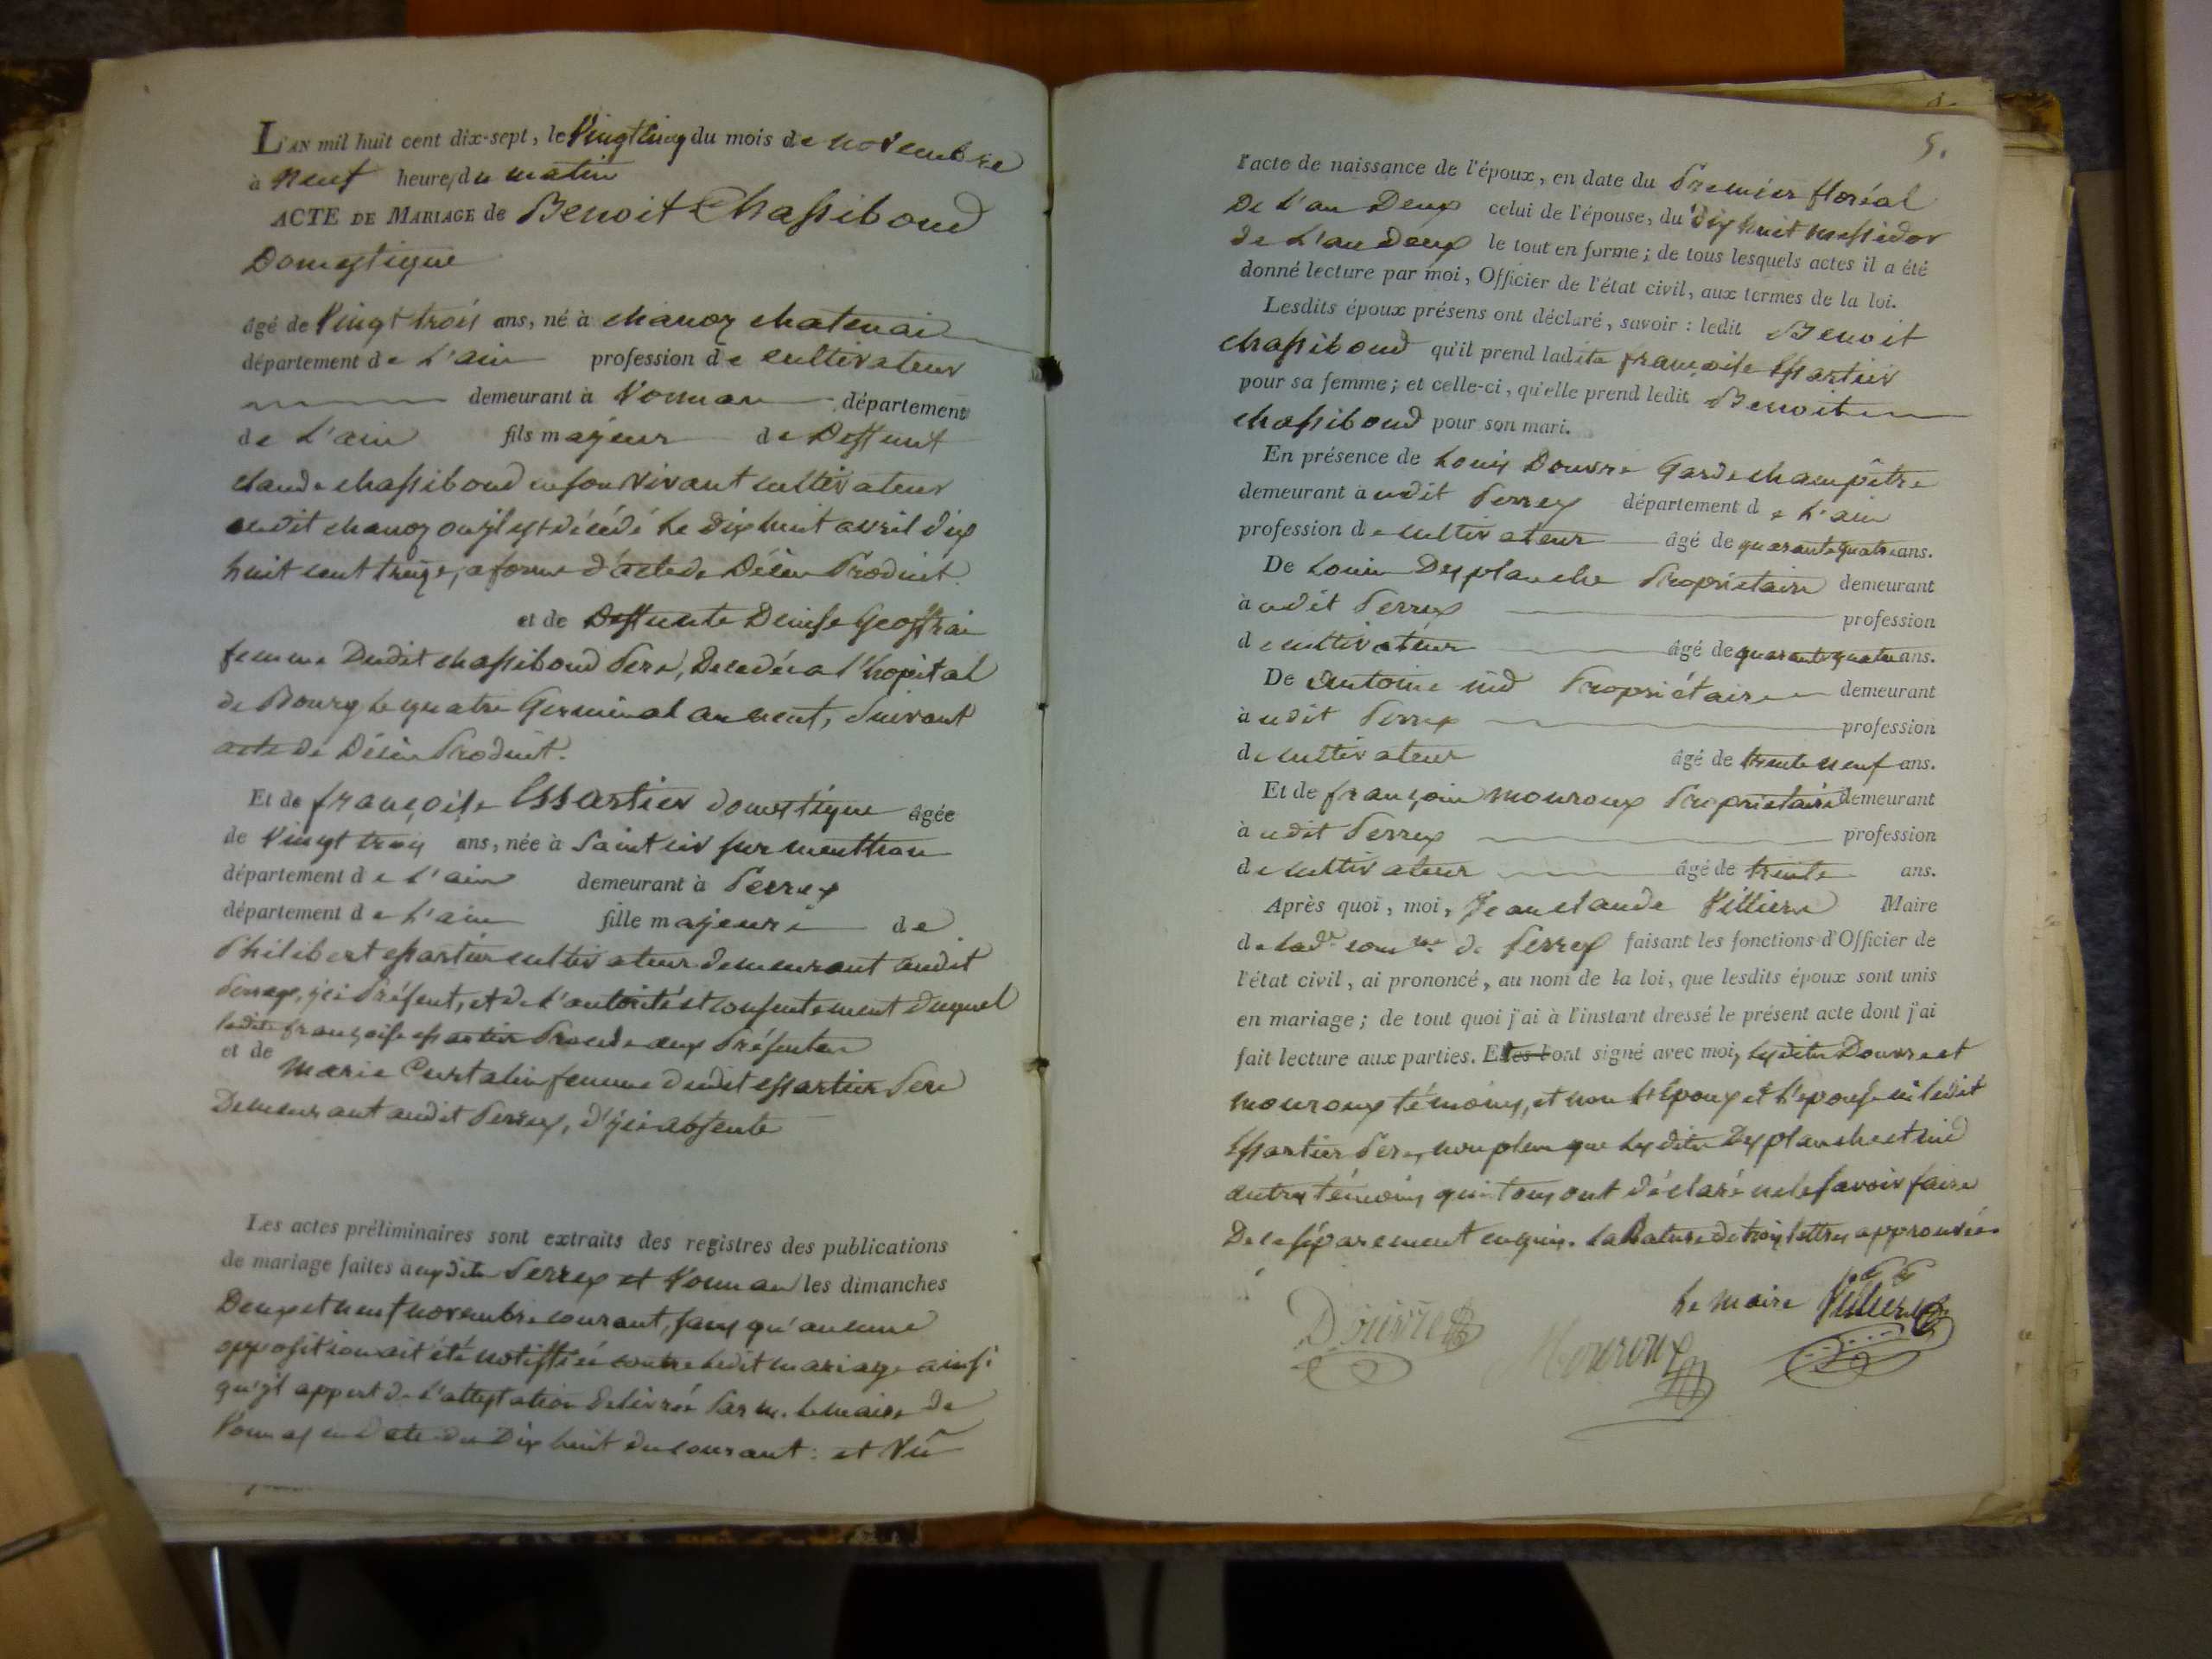 L'AN mil huit cent dix-sept, le Vingt cinq du mois de novembre
à neuf heures du matin
ACTE DE MARIAGE de Benoit Chassiboud
Domestique
âgé de Vingt trois ans, né à chanoz chatenai
département de L'ain profession de cultivateur
demeurant à Vonnas département
de L'ain fils majeur de Deffunt
claude chassiboud en son vivant cultivateur
audit chanoz ou il est décédé Le dix huit avril dix
huit cent treize, a forme d'acte de Décès Produit.
et de Deffunte Denise Geoffrai
femme Dudit chassiboud Pere, Decedée a l'hopital
de Bourg Le quatre Germinal an, Suivant
acte de Décès Produit.
Et de françoise Essartier domestique âgée
de Vingt trois ans, née à Saint cir sur menthon
département de l'ain demeurant à Perrex
département de L'ain fille majeure de
Philibert essartier cultivateur demeurant audit
Perrex, ici Présent, et de L'autorité et consentement duquel
ladite françoise essartier Procede aux Présentes
et de marie Curtalin femme dudit essartier Pere
Demeurant audit Perrex, d'ici absente
Les actes préliminaires sont extraits des registres des publications
de mariage faites auxdits Perrex et Vonnas les dimanches
Deux et neuf novembre courant, sans qu'aucune
opposition ait été nottiffiée contre Ledit mariage ainsi
qu'il appert de L'attestation Delivrée Par m. Le maire de
Vonnas en Date du Dix huit du courant: et Vû
5.
l'acte de naissance de l'époux, en date du Premier floréal
De L'an Deux celui de l'épouse, du dix huit messidor
de L'an deux le tout en forme; de tous lesquels actes il a été
donné lecture par moi, Officier de l'état civil, aux termes de la loi.
Lesdits époux présens ont déclaré, savoir : ledit Benoit
chassiboud qu'il prend ladite françoise Essartier
pour sa femme; et celle-ci, qu'elle prend ledit Benoit
chassiboud pour son mari.
En présence de Louis Douvre Garde champêtre
demeurant audit Perrex département de L'ain
profession de cultivateur âgé de quarante quatre ans.
De Louis Desplanche Propriétaire demeurant
à udit Perrex profession
de cultivateur âgé de quarante quatre ans.
De Antoine nid Propriétaire demeurant
à udit Perrex profession
de cultivateur âgé de trente neuf ans.
Et de françois mouroux Propriétaire demeurant
à udit Perrex profession
de cultivateur âgé de trente ans.
Après quoi, moi, Jean claude Villiers Maire
de lad.e comm.ne de Perrex faisant les fonctions d'Officier de
l'état civil, ai prononcé, au nom de la loi, que lesdits époux sont unis
en mariage; de tout quoi j'ai à l'instant dressé le présent acte dont j'ai
fait lecture aux parties. Elles ont signé avec moi, lesdits Douvre et
mouroux témoins, et non L'époux et L'épouse ni ledit
Essartier Pere, non plus que Lesdits Desplanche et nid
autres témoins qui tous ont déclaré ne le savoir faire
De ce séparement enquis. La Rature de trois lettres approuvée.
Le maire Villiers
Douvre
Mouroux